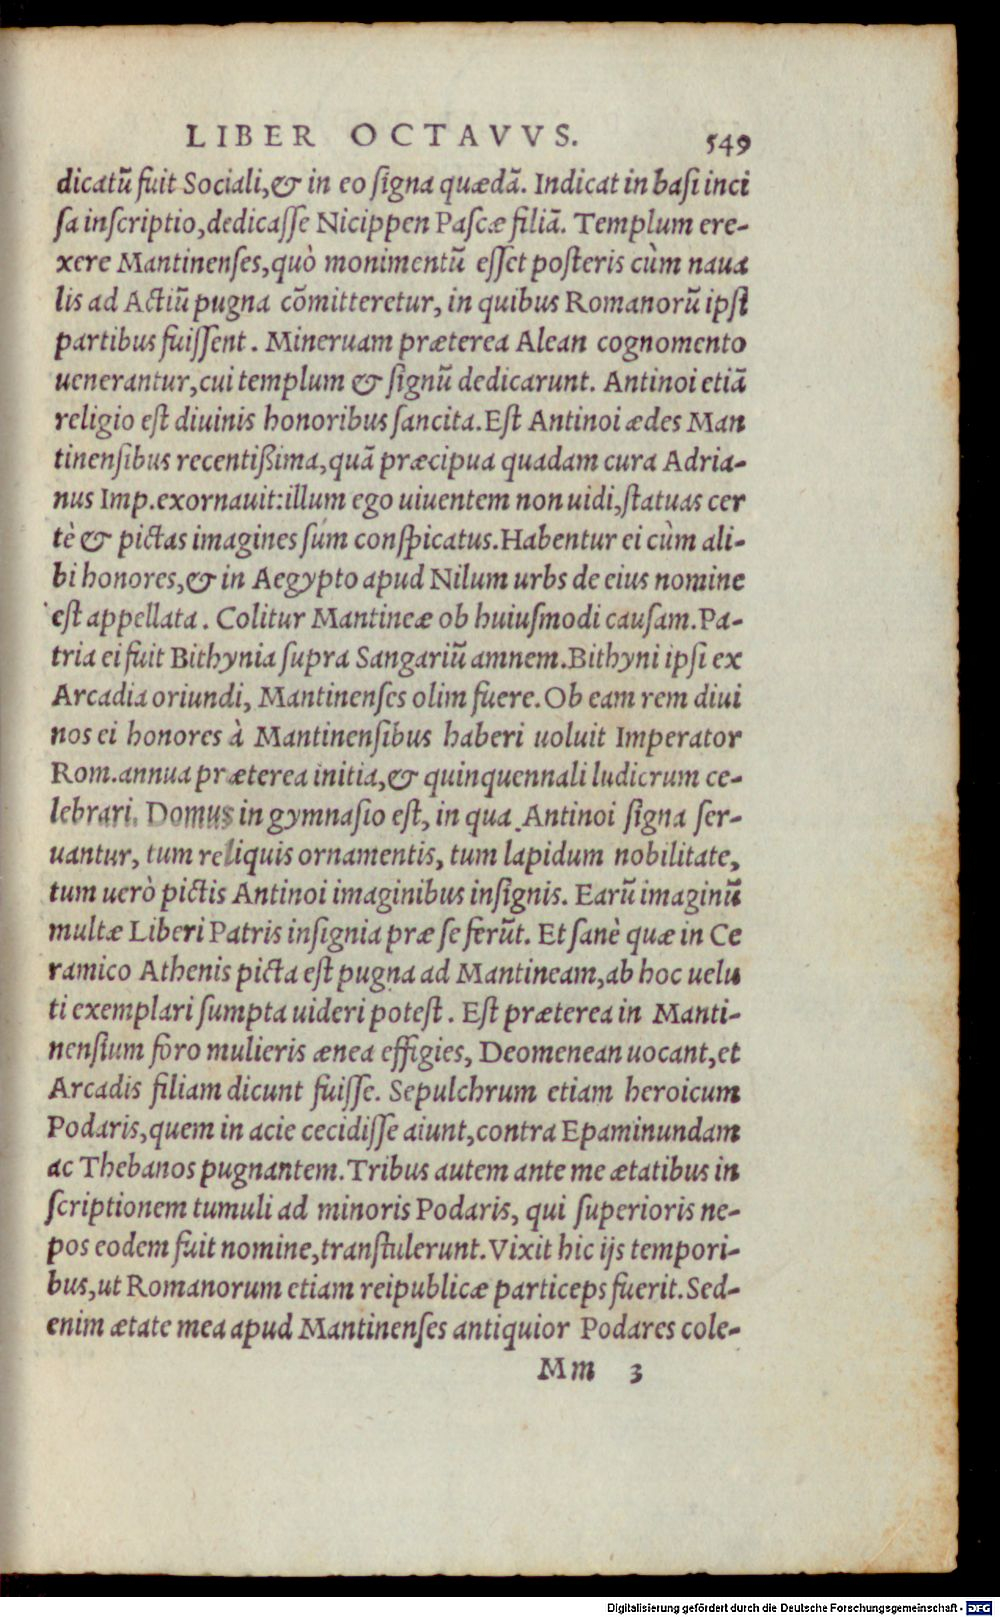 LIBER OCTAVVS. 549
dicatũ fuit Sociali,& in eo ſigna quædã. Indicat in baſi inci
ſa inſcriptio,dedicaſſe Nicippen Paſcæ filiã. Templum ere-
xere Mantinenſes,quò monimentũ eſſet poſteris cùm naua
lis ad Actiũ pugna cõmitteretur, in quibus Romanorũ ipſi
partibus fuiſſent. Mineruam præterea Alean cognomento
uenerantur,cui templum & ſignũ dedicarunt. Antinoi etiã
religio eſt diuinis honoribus ſancita.Eſt Antinoi ædes Man
tinenſibus recentißima,quã præcipua quadam cura Adria-
nus Imp.exornauit:illum ego uiuentem non uidi,ſtatuas cer
tè & pictas imagines ſum conſpicatus.Habentur ei cùm ali-
bi honores,& in Aegypto apud Nilum urbs de eius nomine
eſt appellata. Colitur Mantineæ ob huiuſmodi cauſam.Pa-
tria ei fuit Bithynia ſupra Sangariũ amnem.Bithyni ipſi ex
Arcadia oriundi, Mantinenſes olim fuere.Ob eam rem diui
nos ei honores à Mantinenſibus haberi uoluit Imperator
Rom.annua præterea initia,& quinquennali ludicrum ce-
lebrari. Domus in gymnaſio eſt, in qua Antinoi ſigna ſer-
uantur, tum reliquis ornamentis, tum lapidum nobilitate,
tum uerò pictis Antinoi imaginibus inſignis. Earũ imaginũ
multæ Liberi Patris inſignia præ ſe ferũt. Et ſanè quæ in Ce
ramico Athenis picta eſt pugna ad Mantineam,ab hoc uelu
ti exemplari ſumpta uideri poteſt. Eſt præterea in Manti-
nenſium foro mulieris ænea effigies, Deomenean uocant,et
Arcadis filiam dicunt fuiſſe. Sepulchrum etiam heroicum
Podaris,quem in acie cecidiſſe aiunt,contra Epaminundam
ac Thebanos pugnantem.Tribus autem ante me ætatibus in
ſcriptionem tumuli ad minoris Podaris, qui ſuperioris ne-
pos eodem fuit nomine,tranſtulerunt.Vixit hic ijs tempori-
bus,ut Romanorum etiam reipublicæ particeps fuerit.Sed-
enim ætate mea apud Mantinenſes antiquior Podares cole-
Mm 3
Digitalisierung gefördert durch die Deutsche Forschungsgemeinschaft - DFG